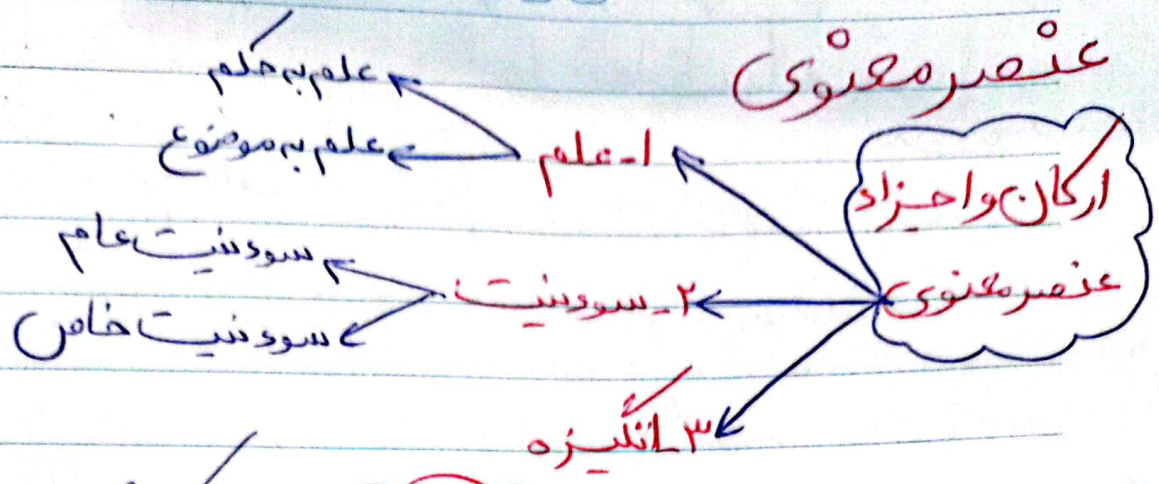 عنصر معنوی
ارکان و اجزاء
عنصر معنوی
۱- علم
علم به حکم
علم به موضوع
۲- سوءنیت:
سوءنیت عام
سوءنیت خاص
۳- انگیزه